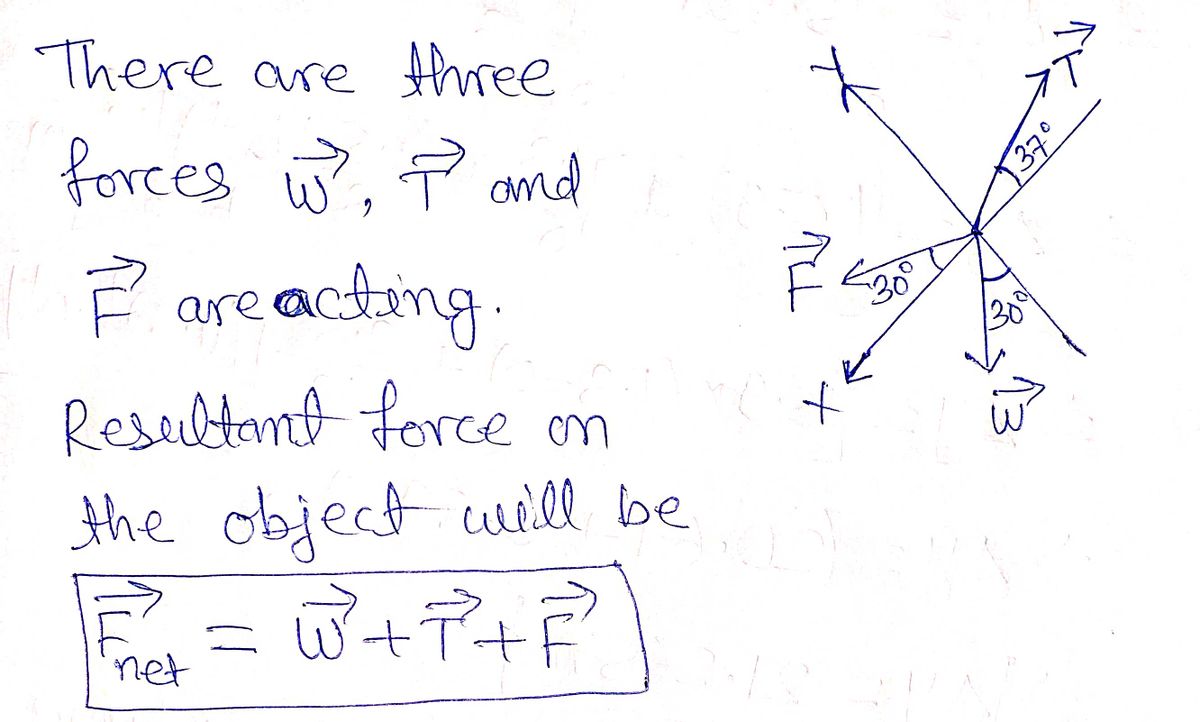 There are three
forces w⃗, T⃗ and
F⃗ are acting.
Resultant force on
the object will be
F⃗net = w⃗ + T⃗ + F⃗
T⃗
37°
+
F⃗
30°
30°
+
w⃗